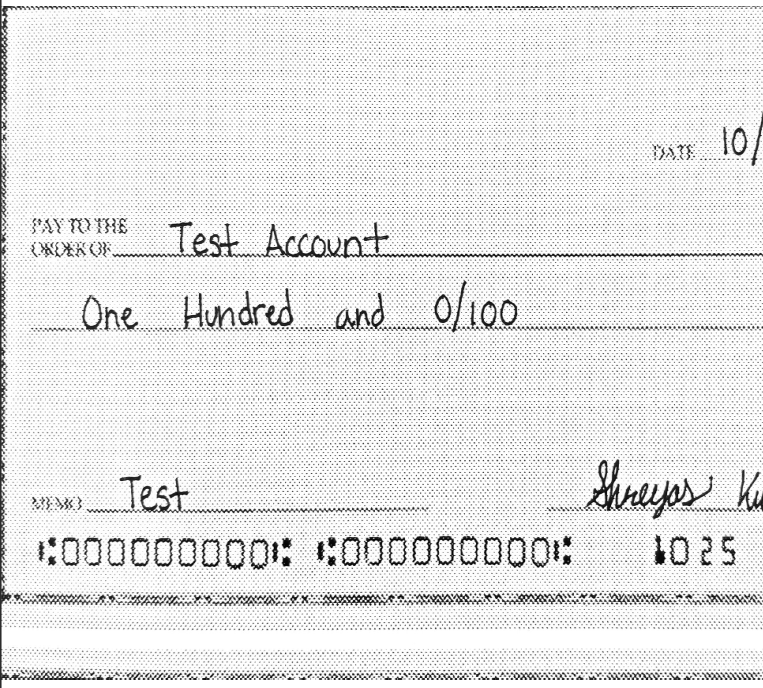 DATE 10/
PAY TO THE
ORDER OF Test Account
One Hundred and 0/100
MEMO Test Shreyas Ku
⑆000000000⑆ ⑆000000000⑆ 1025